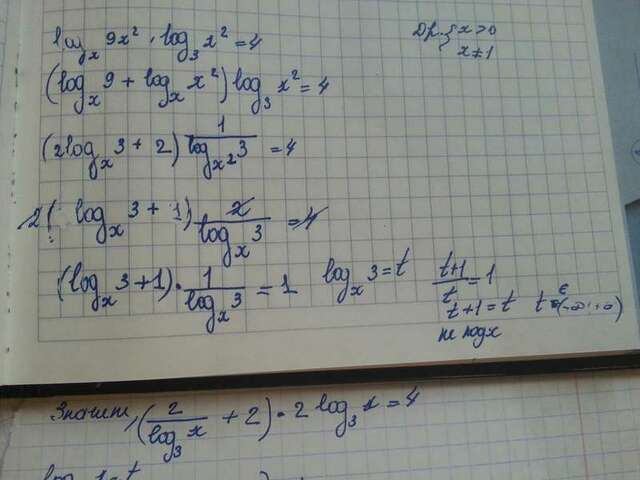 log_x 9x² · log_3 x² = 4
Dp. { x > 0
x ≠ 1
(log_x 9 + log_x x²) log_3 x² = 4
(2 log_x 3 + 2) 1/log_{x²} 3 = 4
2(log_x 3 + 1) 2/log_x 3 = 4
(log_x 3 + 1) · 1/log_x 3 = 1
log_x 3 = t
(t+1)/t = 1
t + 1 = t
не подх
Значит, (2/log_3 x + 2) · 2 log_3 x = 4